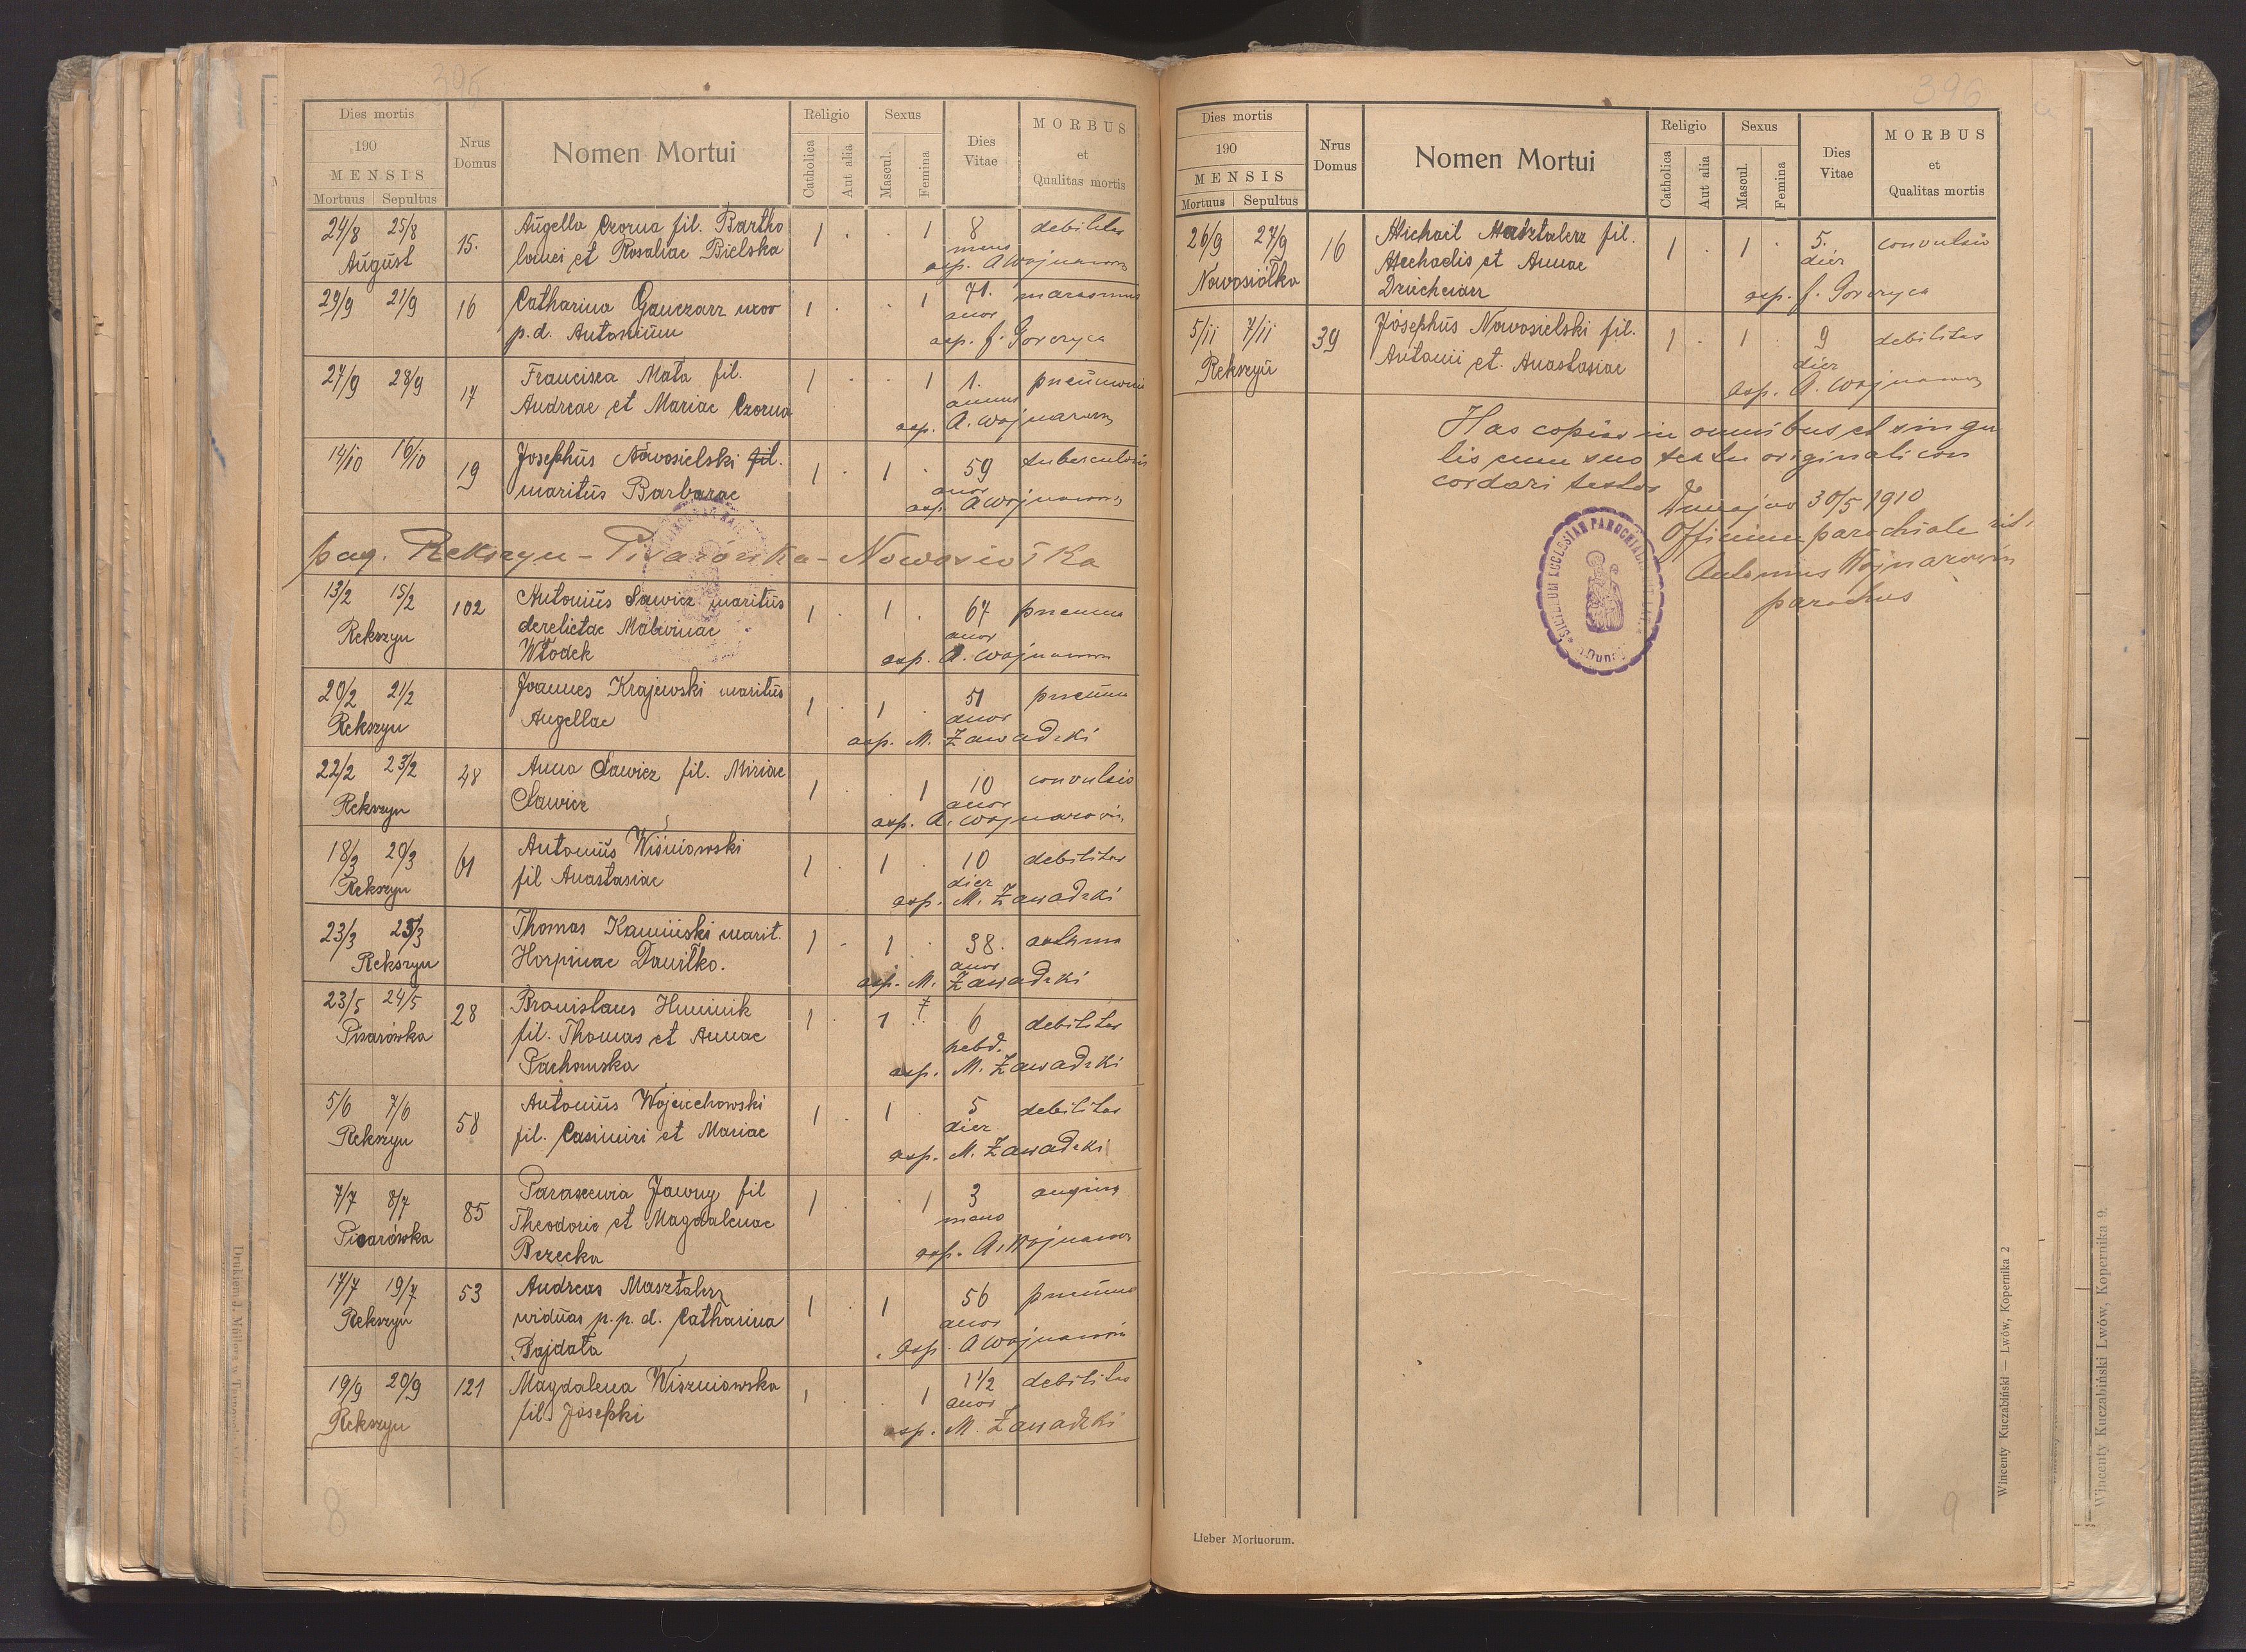 395
Dies mortis
190
MENSIS
Mortuus Sepultus
Nrus Domus
Nomen Mortui
Religio
Catholica
Aut alia
Sexus
Mascul.
Femina
Dies Vitae
MORBUS
et
Qualitas mortis
24/8 25/8 15. Angella Czorna fil. Bartho 1 . . 1 8 debilitas
August lomei et Rosaliae Bielska mens
asp. A Wojnarow
29/9 21/9 16 Catharina Ganczarz uxor 1 . . 1 71. marasmus
p.d. Antonium anor
asp. J. Goreryca
27/9 28/9 17 Francisca Mata fil. 1 . . 1 1. pneumonia
Andreae et Mariae Czorna annus
asp. A. Wojnarow
14/10 16/10 19 Josephus Nowosielski fil. 1 . 1 . 59 tuberculosis
maritus Barbarae anor
asp. A Wojnarow
pag. Rekszyn - Pisarówka - Nowosiołka
13/2 15/2 102 Antonius Sawicz maritus 1 . 1 . 67 pneumo
Rekszyn derelictae Malwinae anor
Włodek asp. A. Wojnarow
20/2 21/2 Joannes Krajewski maritus 1 . 1 . 51 pneumo
Rekszyn Angellae anor
asp. M. Zawadzki
22/2 23/2 48 Anna Sawicz fil. Miriae 1 . . 1 10 convulsio
Rekszyn Sawicz anor
asp. A. Wojnarowi
18/3 20/3 61 Antonius Wiśniowski 1 . 1 . 10 debilitas
Rekszyn fil Anastasiae dier
asp. M. Zawadzki
23/3 25/3 Thomas Kamiński marit. 1 . 1 . 38. asthma
Rekszyn Horpinae Daniłko. anor
asp. M. Zawadzki
23/5 24/5 28 Bronislaus Huminik 1 . 1 . 6 debilitas
Pisarówka fil. Thomas et Annae hebd.
Pachowska asp. M. Zawadzki
5/6 7/6 58 Antonius Wojciechowski 1 . 1 . 5 debilitas
Rekszyn fil. Casimiri et Mariae dier
asp. M. Zawadzki
7/7 8/7 85 Parascewia Jawny fil 1 . . 1 3 angina
Pisarówka Theodorio et Magdalenae mens
Berecka asp. A. Wojnarow
17/7 19/7 53 Andreas Masztalerz 1 . 1 56 pneumo
Rekszyn viduas p. p. d. Catharina anor
Bajdała asp. A Wojnarowi
19/9 20/9 121 Magdalena Wiszniowska 1 . . 1 1 1/2 debilitas
Rekszyn fil. Josephi anor
asp. M. Zawadzki
8
396
Dies mortis
190
MENSIS
Mortuus Sepultus
Nrus Domus
Nomen Mortui
Religio
Catholica
Aut alia
Sexus
Mascul.
Femina
Dies Vitae
MORBUS
et
Qualitas mortis
26/9 27/9 16 Michail Masztalerz fil. 1 1 . 5. convulsio
Nowosiołka Mechaelis et Annae dier
asp. J. Goreryca
5/11 7/11 39 Josephus Nowosielski fil. 1 . 1 . 9 debilitas
Rekszyn Antonii et Anastasiae dier
asp. A. Wojnarow
Has copias in omnibus et singu
lis cum suo textu originali con
cordari testor
Dunajow 30/5 1910
Officium parochiale rit.
Antonius Wojnarowicz
parochus
SIGILLUM ECCLESIAE PAROCHIALIS
Lieber Mortuorum.
9
Wincenty Kuczabiński — Lwów, Kopernika 2
Wincenty Kuczabiński Lwów, Kopernika 9.